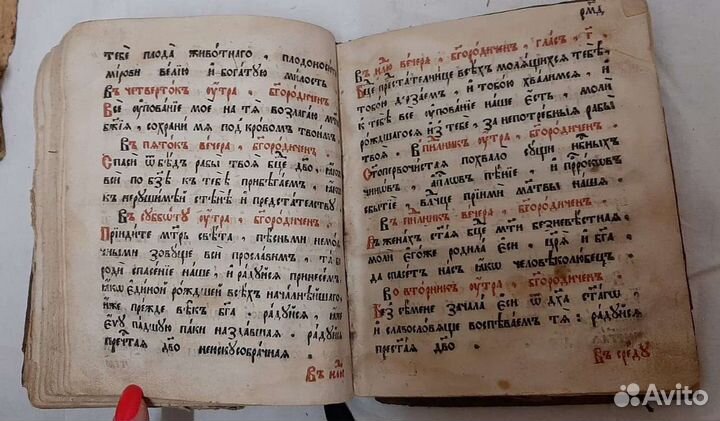 тебѐ плода̀ живо́тнаго, плодоноси́ти
мі́рови ве́лїю и҆ бога́тую ми́лость
Въ четверто́къ ᲂу҆́тра, бг҃оро́диченъ.
Всѐ ᲂу҆пова́нїе моѐ на тѧ̀ возлага́ю мт҃и
бж҃їѧ, сохрани́ мѧ под кро́вомъ твои́мъ
Въ пѧто́къ ве́чера, бг҃оро́диченъ.
Спасѝ ѿ бѣ́дъ рабы̀ твоѧ̀ бц҃е дв҃о, ꙗ҆́кѡ
всѝ по бз҃ѣ къ тебѣ̀ прибѣга́емъ, ꙗ҆́кѡ
къ неруши́мѣй стѣнѣ̀ и҆ предста́тельству.
Въ суббо́ту ᲂу҆́тра, бг҃оро́диченъ.
Прїиди́те мт҃рь свѣ́та, пѣ́сньми немо́л
чными зову́ще всѝ просла́вимъ, та́ бо
родѝ спасе́нїе на́ше, и҆ ра́дуйсѧ принесе́мъ
ꙗ҆́кѡ є҆ди́ной ро́ждшей всѣ́хъ нача́лнѣйшаго,
и҆́же пре́жде вѣ́къ бг҃а. ра́дуйсѧ, ꙗ҆́же
є҆́ѵу па́дшую па́ки назда́вшаѧ. ра́дуйсѧ
пречⷭ҇таѧ дв҃о неискусобра́чнаѧ.
Въ нлⷣю
рмд
Въ нлⷣю ве́чера, бг҃оро́диченъ, гла́съ, г҃.
Бц҃е предста́телнице всѣ́хъ молѧ́щихсѧ тебѣ̀,
тобо́ю де́рзаемъ, и҆ тобо́ю хва́лимсѧ, и҆
къ тебѣ̀ всѐ ᲂу҆пова́нїе на́ше є҆́сть, молѝ
ро́ждшагосѧ и҆з тебѐ, за непотре́бныѧ рабы̀
твоѧ̀. Въ пнⷣлникъ ᲂу҆́тра, бг҃оро́диченъ.
Стопервочи́стаѧ похва́ло су́щи нбⷭ҇ныхъ
чинѡ́въ, а҆пⷭ҇лѡвъ пѣ́нїе, и҆ прⷪ҇рѡкѡвъ
събытїѐ, влⷣчце прїимѝ мл҃твы на́шѧ.
Въ пнⷣлникъ ве́чера, бг҃оро́диченъ.
Въ жена́хъ ст҃а́ѧ бц҃е мт҃и безневѣ́стнаѧ,
молѝ є҆го́же родила̀ є҆сѝ, цр҃ѧ̀ и҆ бг҃а
да спасе́тъ на́съ ꙗ҆́кѡ человѣколю́бецъ.
Во вто́рникъ ᲂу҆́тра бг҃оро́диченъ.
Без сѣ́мене зачала̀ є҆сѝ ѿ дх҃а ст҃а́гѡ,
и҆ славосло́вѧще воспѣва́емъ тѧ̀: ра́дуйсѧ
престⷭ҇аѧ дв҃о.
Въ сре́ду
Avito